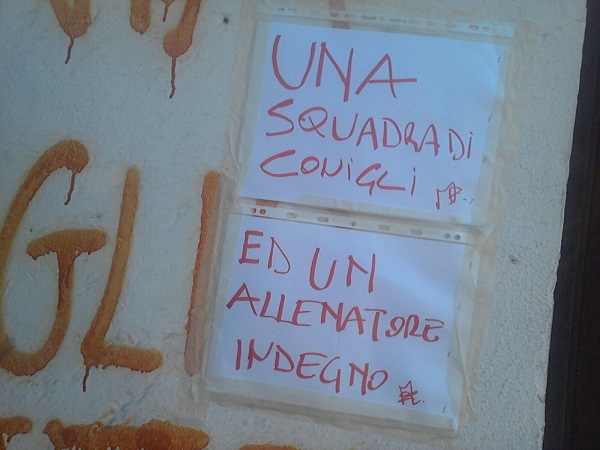 UNA
SQUADRA DI
CONIGLI
ED UN
ALLENATORE
INDEGNO
GLI